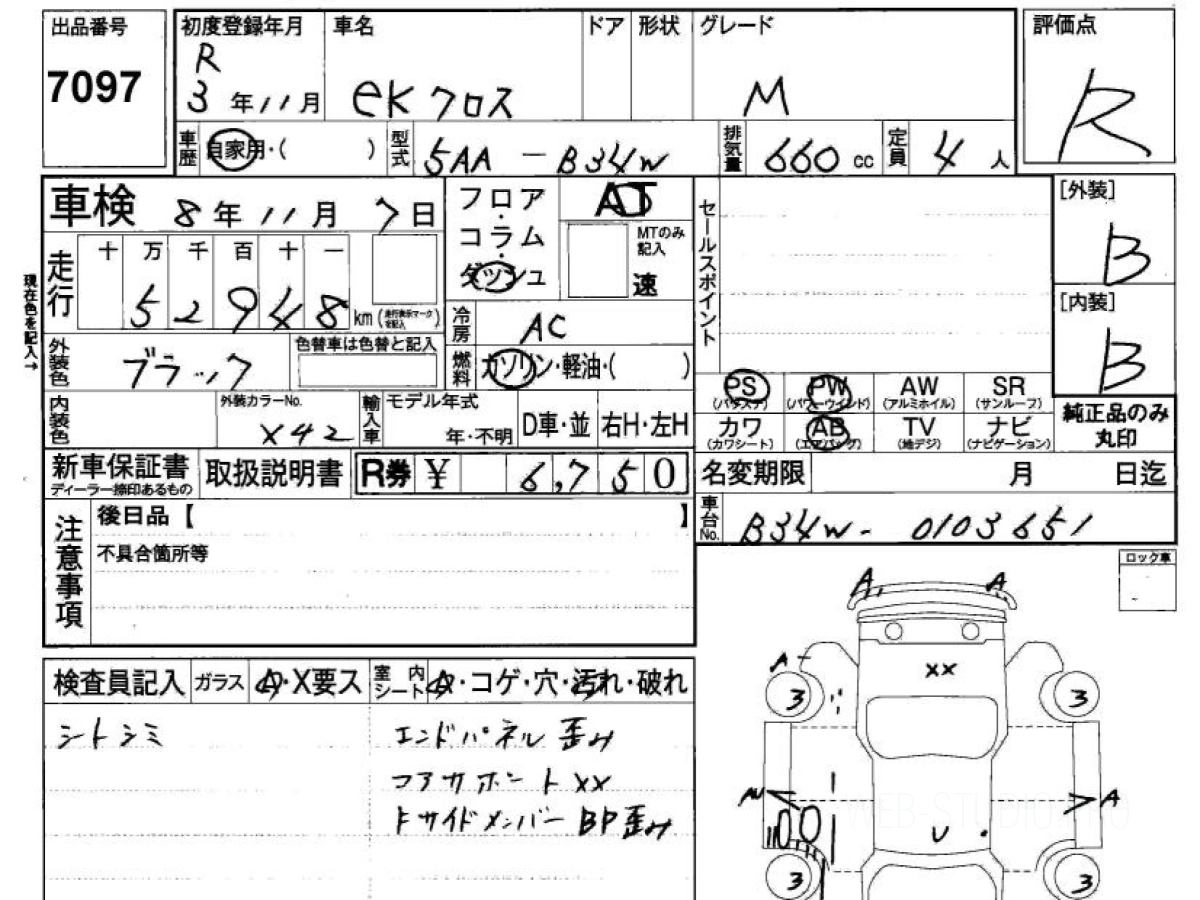 出品番号
7097
初度登録年月 車名 ドア 形状 グレード
R
3年11月 eKクロス M
評価点
R
車歴 自家用・( ) 型式 5AA-B34W 排気量 660cc 定員 4人
車検 8年11月7日
フロア・コラム・ダッシュ AT
MTのみ記入
速
セールスポイント
[外装]
B
[内装]
B
現在色を記入→
走行 十 万 千 百 十 一
5 2 9 4 8 km (走行表示マークを記入)
冷房 AC
外装色 ブラック 色替車は色替と記入
燃料 ガソリン・軽油・( )
PS (パワステ) PW (パワーウインド) AW (アルミホイル) SR (サンルーフ)
カワ (カワシート) AB (エアバッグ) TV (地デジ) ナビ (ナビゲーション)
純正品のみ丸印
内装色 外装カラーNo. X42 輸入車 モデル年式 年・不明 D車・並 右H・左H
新車保証書 ディーラー捺印あるもの 取扱説明書 R券 ¥ 6,750
名変期限 月 日迄
車台No. B34W-0103651
注意事項
後日品【 】
不具合箇所等
ロック車
検査員記入 ガラス A・X要ス 室内シート A・コゲ・穴・汚れ・破れ
シートシミ エンドパネル歪み
コアサポート XX
トサイドメンバー BP歪み
A A
A XX
3 3
A
U
3 3
WEB-STUDIO.PRO